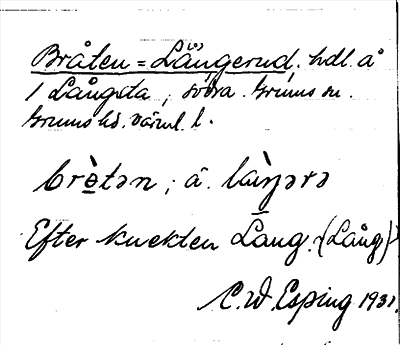 Bråten = Lån(o)gerud, hdl. å
1 Långsta, södra. Grums sn.
Grums hd. Värml. l.
brètən; å. làŋərə
Efter knekten Lang. (Lång)
C. W. Esping 1931.